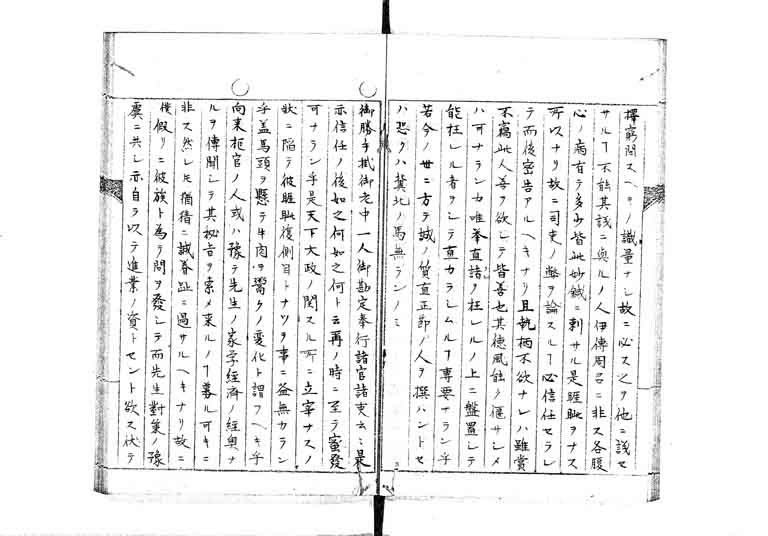 擇窮問スヘキノ識量ナシ故ニ必ス之ヲ他ニ議セ
サルヿ不能其議ニ與ルノ人伊傅周召ニ非ス各腹
心ノ病有テ多少皆此妙鍼ニ刺サル是睚眦ヲナス
所以ナリ故ニ司吏ノ弊ヲ論スルヿ必信任セラレ
テ而後密告アルヘキナリ且執柄不欲ナレハ雖賞
不竊此人善ヲ欲シテ皆善也其德風能ク偃サシメ
ハ可ナランカ唯挙直諸ヲ枉レルノ上ニ盤置シテ
能枉レル者ヲシテ直カラシムルヿ専要ナラン乎
若今ノ世ニ方テ誠ノ質直正節ノ人ヲ撰ハントセ
ハ恐クハ冀北ノ馬無ランノミ
御勝手掛御老中一人御勘定奉行諸官諸吏云〻是
亦信任ノ後如之何如之何ト云再ノ時ニ至テ蜜發
可ナラン乎是天下大政ノ関スル所ニ立宰ナスノ
狀ニ陥テ彼睚眦復側目トナツテ事ニ益無カラン
乎盖馬頭ヲ懸テ牛肉ヲ鬻クノ変化ト謂フヘキ乎
向来柜官ノ人或ハ豫テ先生ノ家学経濟ノ経奥ナ
ルヲ傳聞シテ其秘旨ヲ索メ来ルノヿ募ル可キニ
非ス然レ𪜈猶猜ニ誠眷趾ニ過サルヘキナリ故ニ
僕假リニ彼族ト為テ問ヲ發シテ而先生對策ノ豫
虞ニ共シ亦自ラ以テ進業ノ資トセント欲ス伏テ